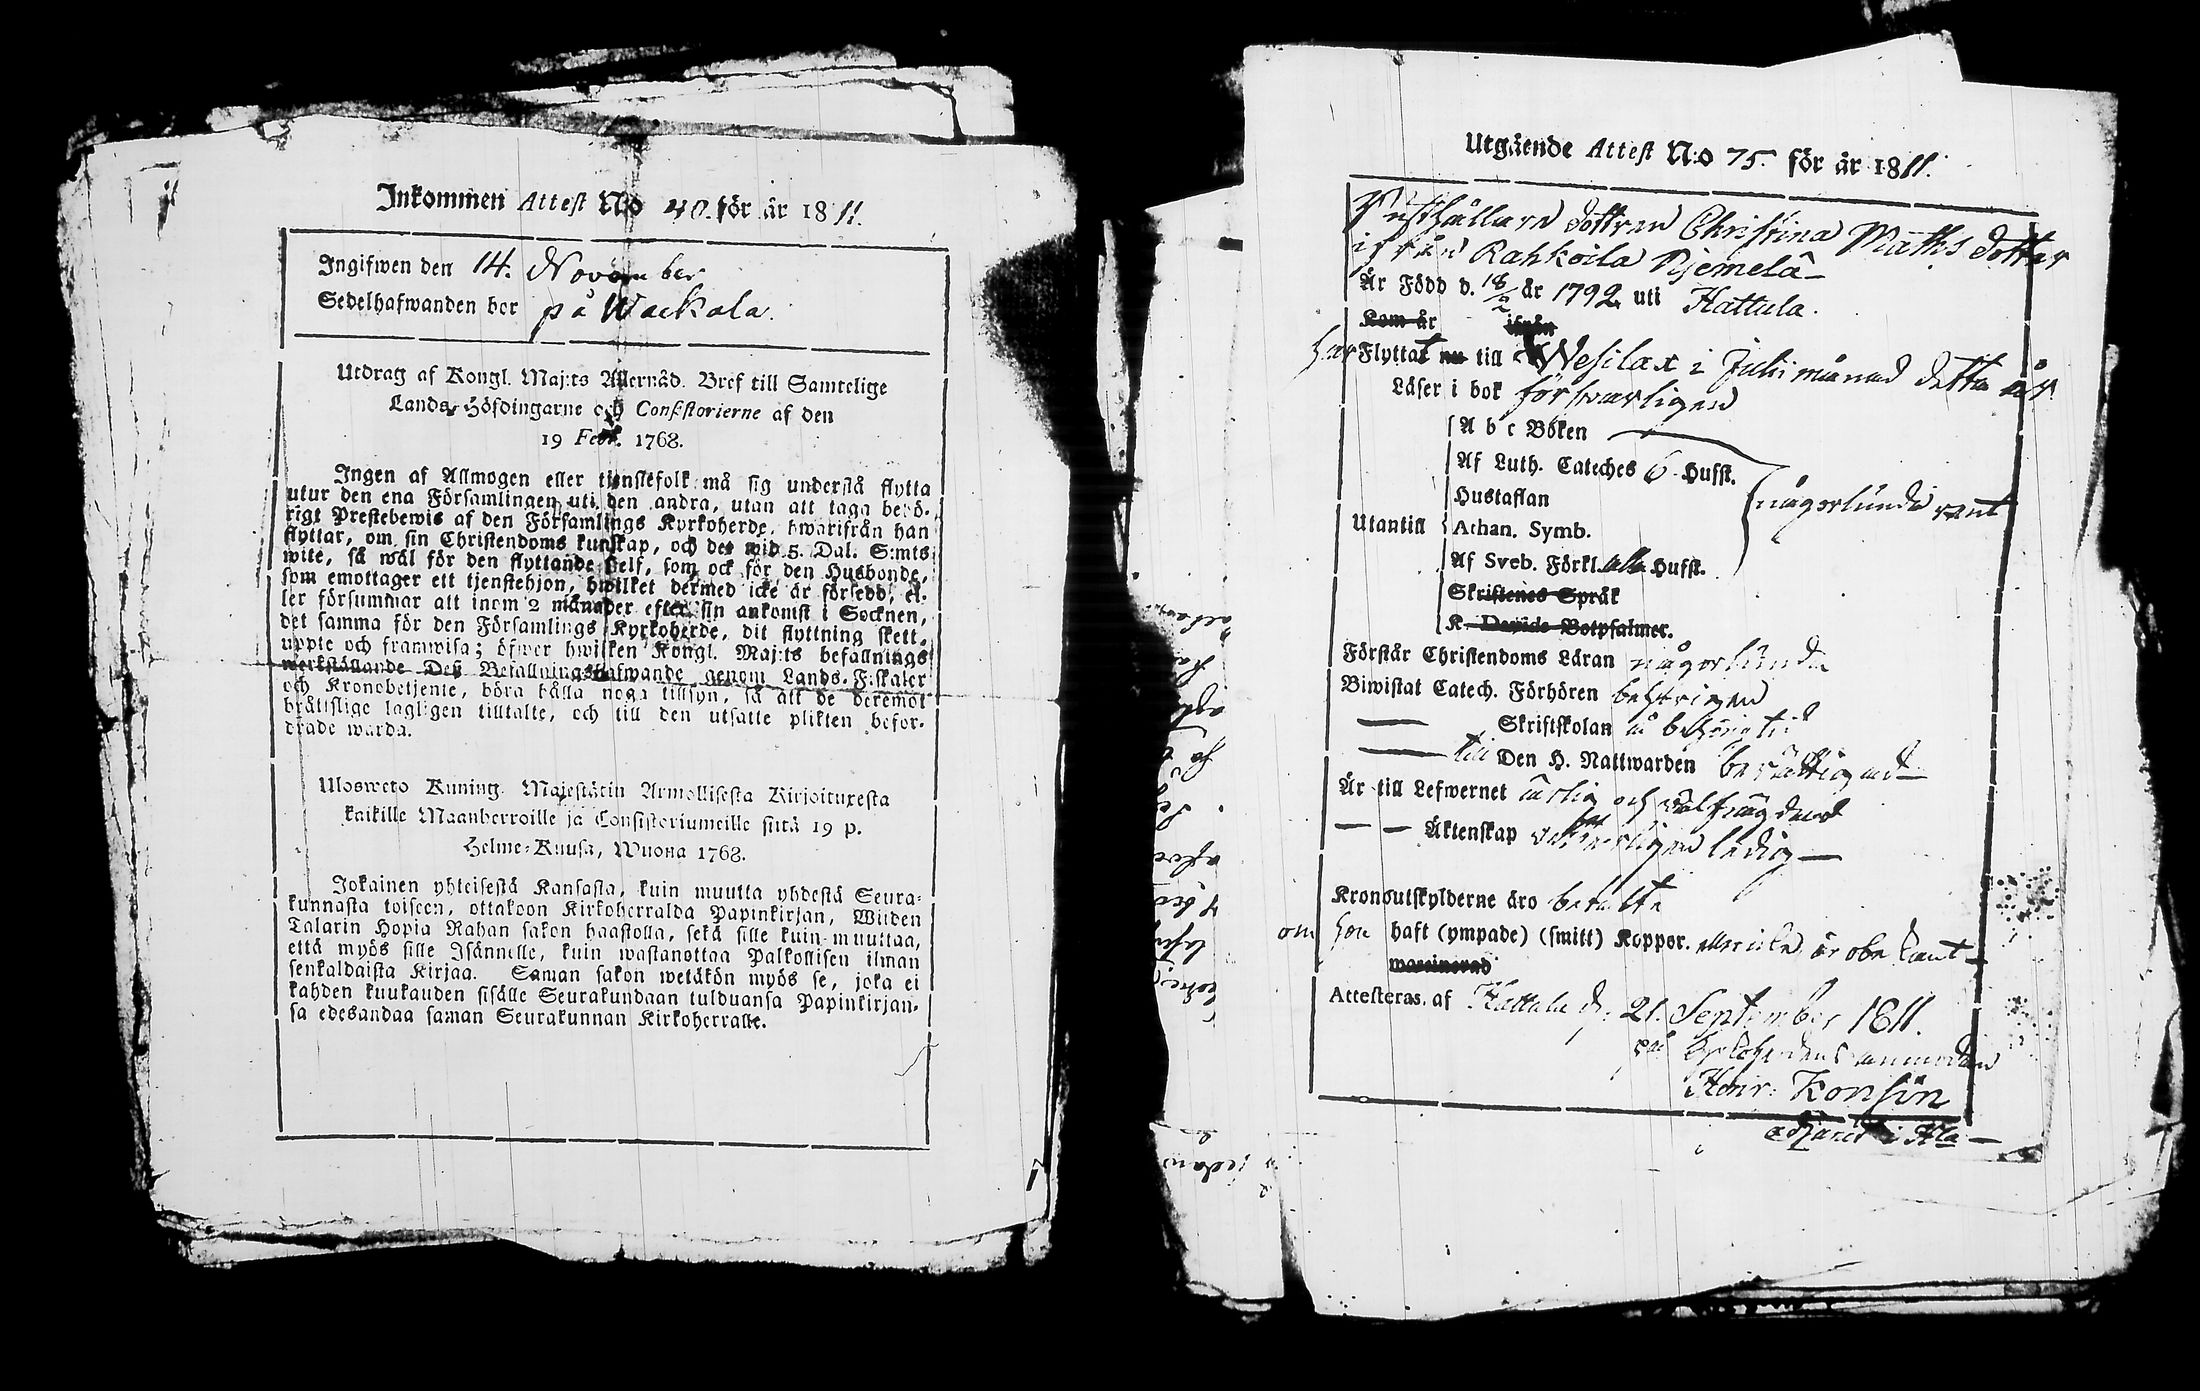 Inkommen Attest N:o 40. för år 1811.
Ingifwen den 14. November
Sedelhafwanden bor på Wackala.
Utdrag af Kongl. Maj:ts Allernåd. Bref till Samtelige
Lands-Höfdingarne och Consistorierne af den
19 Febr. 1768.
Ingen af Allmogen eller tjenstefolk må sig understå flytta
utur den ena Församlingen uti den andra, utan att taga behö-
rigt Prestebewis af den Församlings Kyrkoherde, hwarifrån han
flyttar, om sin Christendoms kunskap, och det wid 5. Dal. S:mts
wite, så wäl för den flyttande sielf, som ock för den Husbonde,
som emottager ett tjenstehjon, hwilket dermed icke är försedd, el-
ler försummar att inom 2 månader efter sin ankomst i Socknen,
det samma för den Församlings Kyrkoherde, dit flyttning skett,
uppte och framwisa; öfwer hwilken Kongl. Maj:ts befallnings
werkställande Deß Befallningshafwande genom Lands-Fiskaler
och Kronobetjente, böra hålla noga tillsyn, så att de deremot
brättslige lagligen tilltalte, och till den utsatte plikten befor-
drade warda.
Ulosweto Kuning. Majestätin Armollisesta Kirjoituxesta
kaikille Maanherroille ja Consistoriumeille siitä 19 p.
Helme-Kuusa, Wuona 1768.
Jokainen yhteisestä Kansasta, kuin muutta yhdestä Seura-
kunnasta toiseen, ottakoon Kirkoherralda Papinkirjan, Wiiden
Talarin Hopia Rahan sakon haastolla, sekä sille kuin muuttaa,
että myös sille Isännelle, kuin wastanottaa Palkollisen ilman
senkaldaista Kirjaa. Saman sakon wetäkön myös se, joka ei
kahden kuukauden sisälle Seurakundaan tulduansa Papinkirjan-
sa edesandaa saman Seurakunnan Kirkoherralle.
Utgående Attest N:o 75. för år 1811.
Rusthållare dottren Christina Maths dotter
ifrån Rahkoila Njemelä
Är Född d. 18/2 år 1792 uti Hattula.
Kom år ifrån
har Flyttat nu till Wesilax i Julii månad detta år
Läser i bok försvarligen
A b c Boken
Af Luth. Cateches 6 Hufst.
Hustaflan någorlunda rent
Utantill Athan. Symb.
Af Sveb. Förkl. alla Hufst.
Skriftenes Språk
K. Davids Botpsalmer.
Förstår Christendoms Läran någorlunda
Biwistat Catech. Förhören behörigen
Skriftskolan å behörig tid
till Den H. Nattwarden berättigad
Är till Lefwernet ärlig och välfrägdad
Äktenskap ledig
Kronoutskylderne äro betalte
om hon haft (ympade) (smitt) Koppor. eller icke, är obekant
waccinerad
Attesteras, af Hattula d. 21. September 1811.
på Kyrkoherdens anmodan
Henr: Konsin
adjunct i H:la